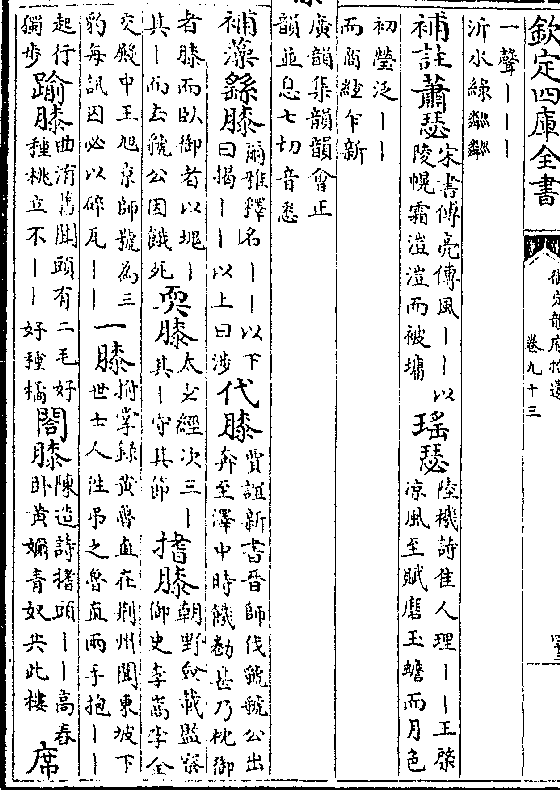 欽定四庫全書
御定韻府拾遺
卷九十三
一聲｜｜｜
沂水綠粼粼
補註蕭瑟
宋書傅亮傳風｜｜以
陵幌霜溰溰而被墉
瑤瑟
陸機詩佳人理｜｜王棨
涼風至賦磨玉蟾而月色
初瑩泛｜｜
而商絃乍新
廣韻集韻韻會正
韻並息七切音悉
補藻繇膝
爾雅釋名｜｜以下
曰揭｜｜以上曰涉
代膝
賈誼新書晉師伐虢虢公出
奔至澤中時饑勸甚乃枕御
者膝而臥御者以塊｜
其｜而去虢公因餓死
耎膝
太玄經次三｜
其｜守其節
搘膝
朝野僉載監察
御史李嵩李全
交殿中王旭京師號為三
豹每訊囚必以碎瓦｜｜
一膝
拊掌錄黃魯直在荆州聞東坡下
世士人往弔之魯直兩手抱｜｜
起行
獨步
踰膝
曲洧舊聞頭有二毛好
種桃立不｜｜好種橘
閣膝
陳造詩搘頭｜｜高舂
卧黃嬭青奴共此樓
席